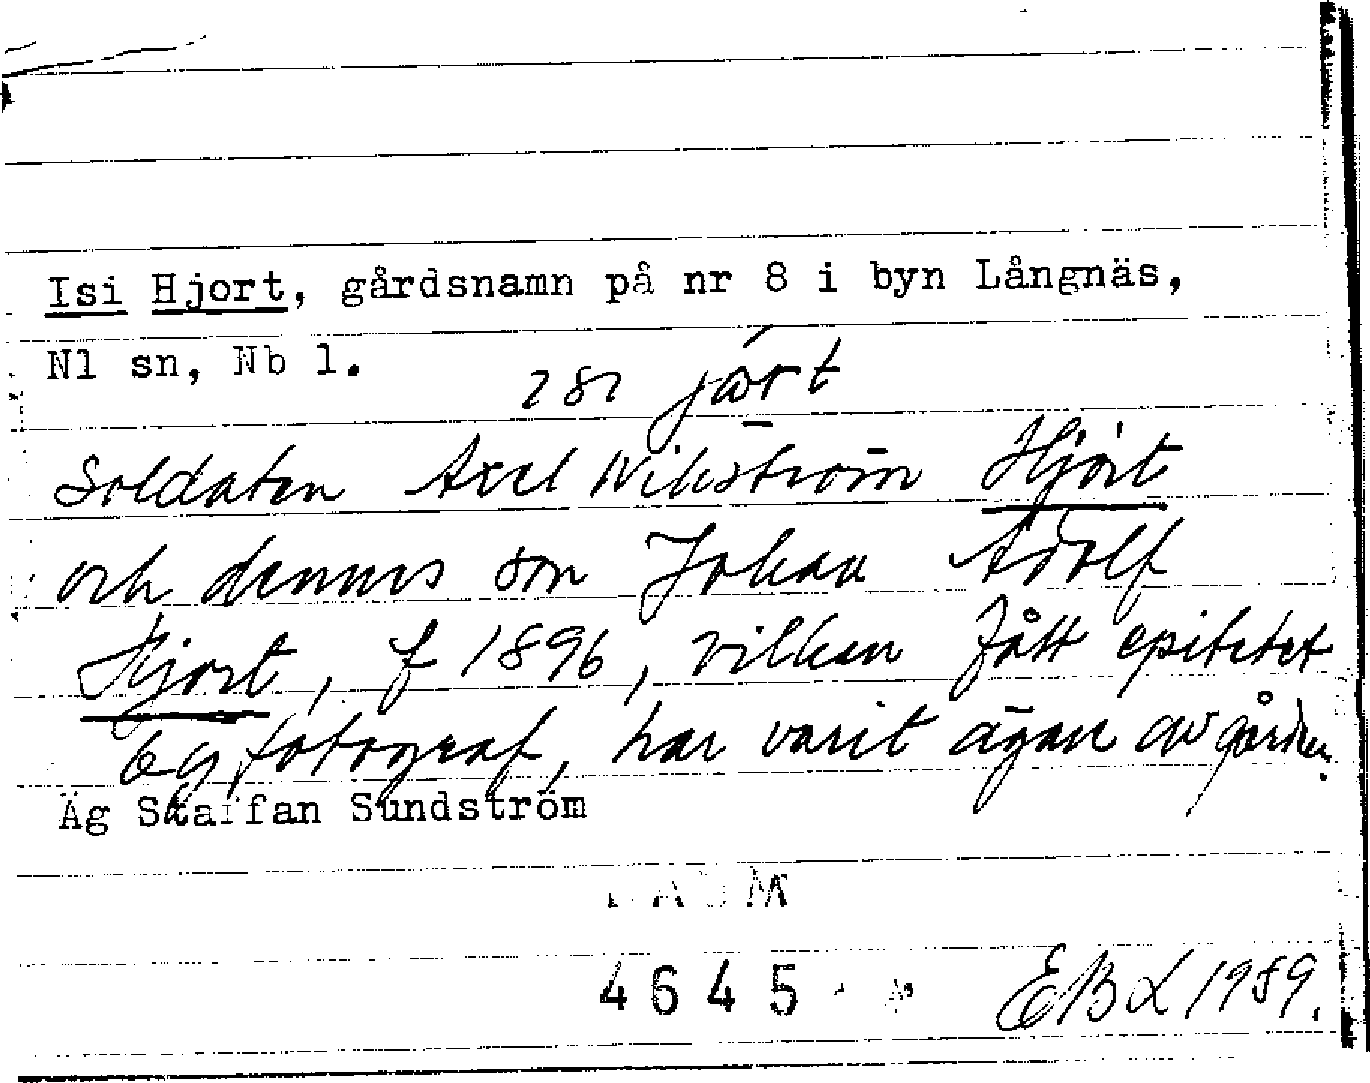 Isi Hjort, gårdsnamn på nr 8 i byn Långnäs,
Nl sn, Nb l.
Soldaten Axel Wikström Hjort
och dennes son Johan Adolf
Hjort, f 1896, vilken fått epitetet
fotograf, har varit ägare av gården.
Äg Staffan Sundström
4645
EBL 1989.